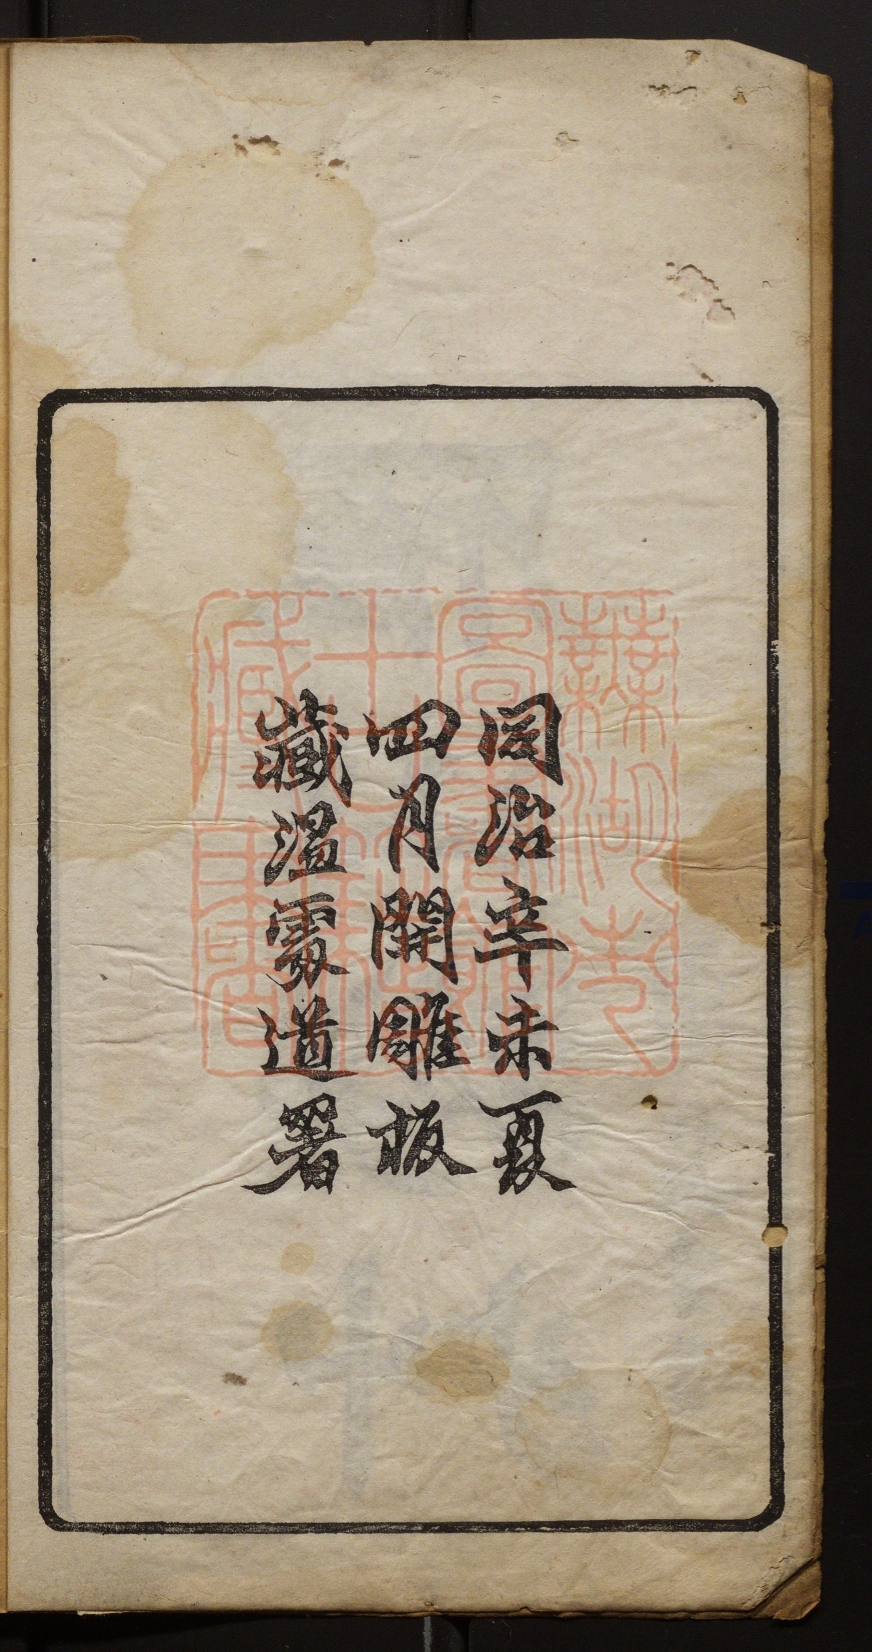 同治辛未夏
四月開雕板
藏溫處道署